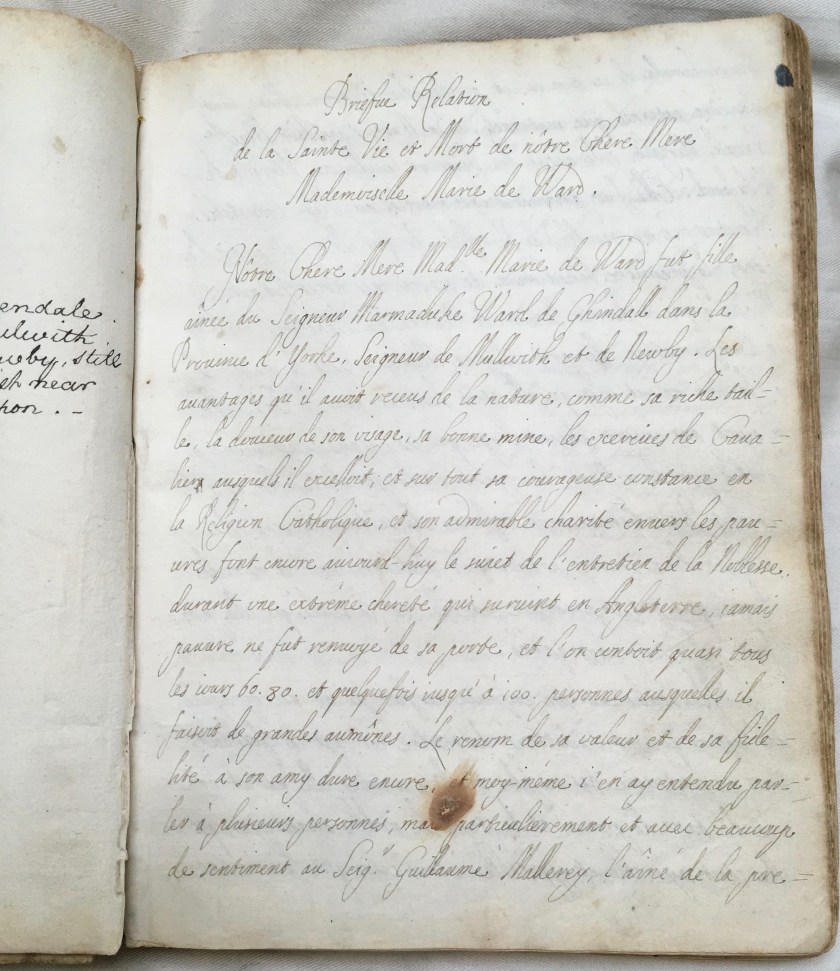 endale.
ulwith
wby, still
near
pon. -
Briefue Relation
de la Sainte Vie et Mort de nôtre Chere Mere
Mademoiselle Marie de Ward.
Nôtre Chere Mere Mad.lle Marie de Ward fut fille
ainée du Seigneur Marmaduke Ward de Ghindall dans la
Prouince d'Yorke, Seigneur de Mullwith et de Newby. Les
auantages qu'il auoit receus de la nature, comme sa riche tail=
le, la douceur de son visage, sa bonne mine, les exercices de Caua=
liers ausquels il excelloit, et sur tout sa courageuse constance en
la Religion Catholique, et son admirable charité enuers les pau=
ures font encore auiourd-huy le suiet de l'entretien de la Noblesse.
durant vne extréme cherté qui suruint en Angleterre, iamais
pauure ne fut renuoyé de sa porte, et l'on contoit quasi tous
les iours 60. 80. et quelquefois iusqu'à 100. personnes ausquelles il
faisoit de grandes aumônes. Le renom de sa valeur et de sa fide=
lité à son amy dure encore, et moy-méme i'en ay entendu par=
ler à plusieurs personnes, mais particulierement et auec beaucoup
de sentiment au Seig.r Guillaume Mallerey, l'aîné de la pre=